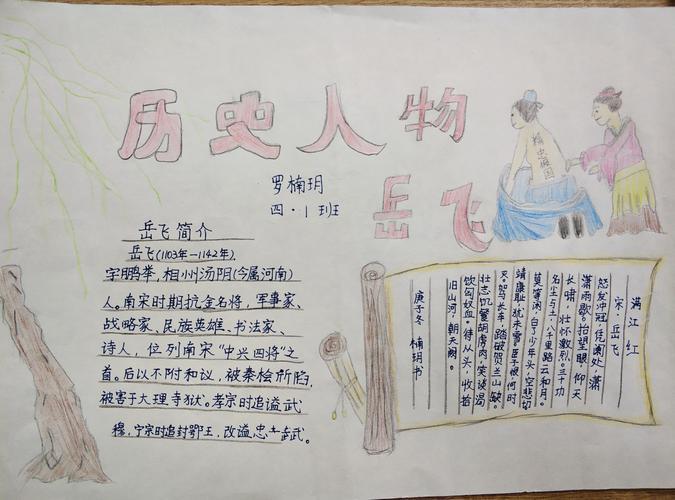 历史人物
岳飞
罗楠玥
四·1班
精忠报国
岳飞简介
岳飞(1103年-1142年),
字鹏举,相州汤阴(今属河南)
人。南宋时期抗金名将,军事家、
战略家、民族英雄、书法家、
诗人,位列南宋“中兴四将”之
首。后以不附和议,被秦桧所陷,
被害于大理寺狱。孝宗时追谥武
穆,宁宗时追封鄂王,改谥忠武。
满江红
宋·岳飞
怒发冲冠,凭阑处,潇
潇雨歇。抬望眼,仰天
长啸,壮怀激烈。三十功
名尘与土,八千里路云和月。
莫等闲,白了少年头,空悲切
靖康耻,犹未雪,臣子恨,何时
灭。驾长车,踏破贺兰山缺。
壮志饥餐胡虏肉,笑谈渴
饮匈奴血。待从头,收拾
旧山河,朝天阙。
庚子冬 楠玥书